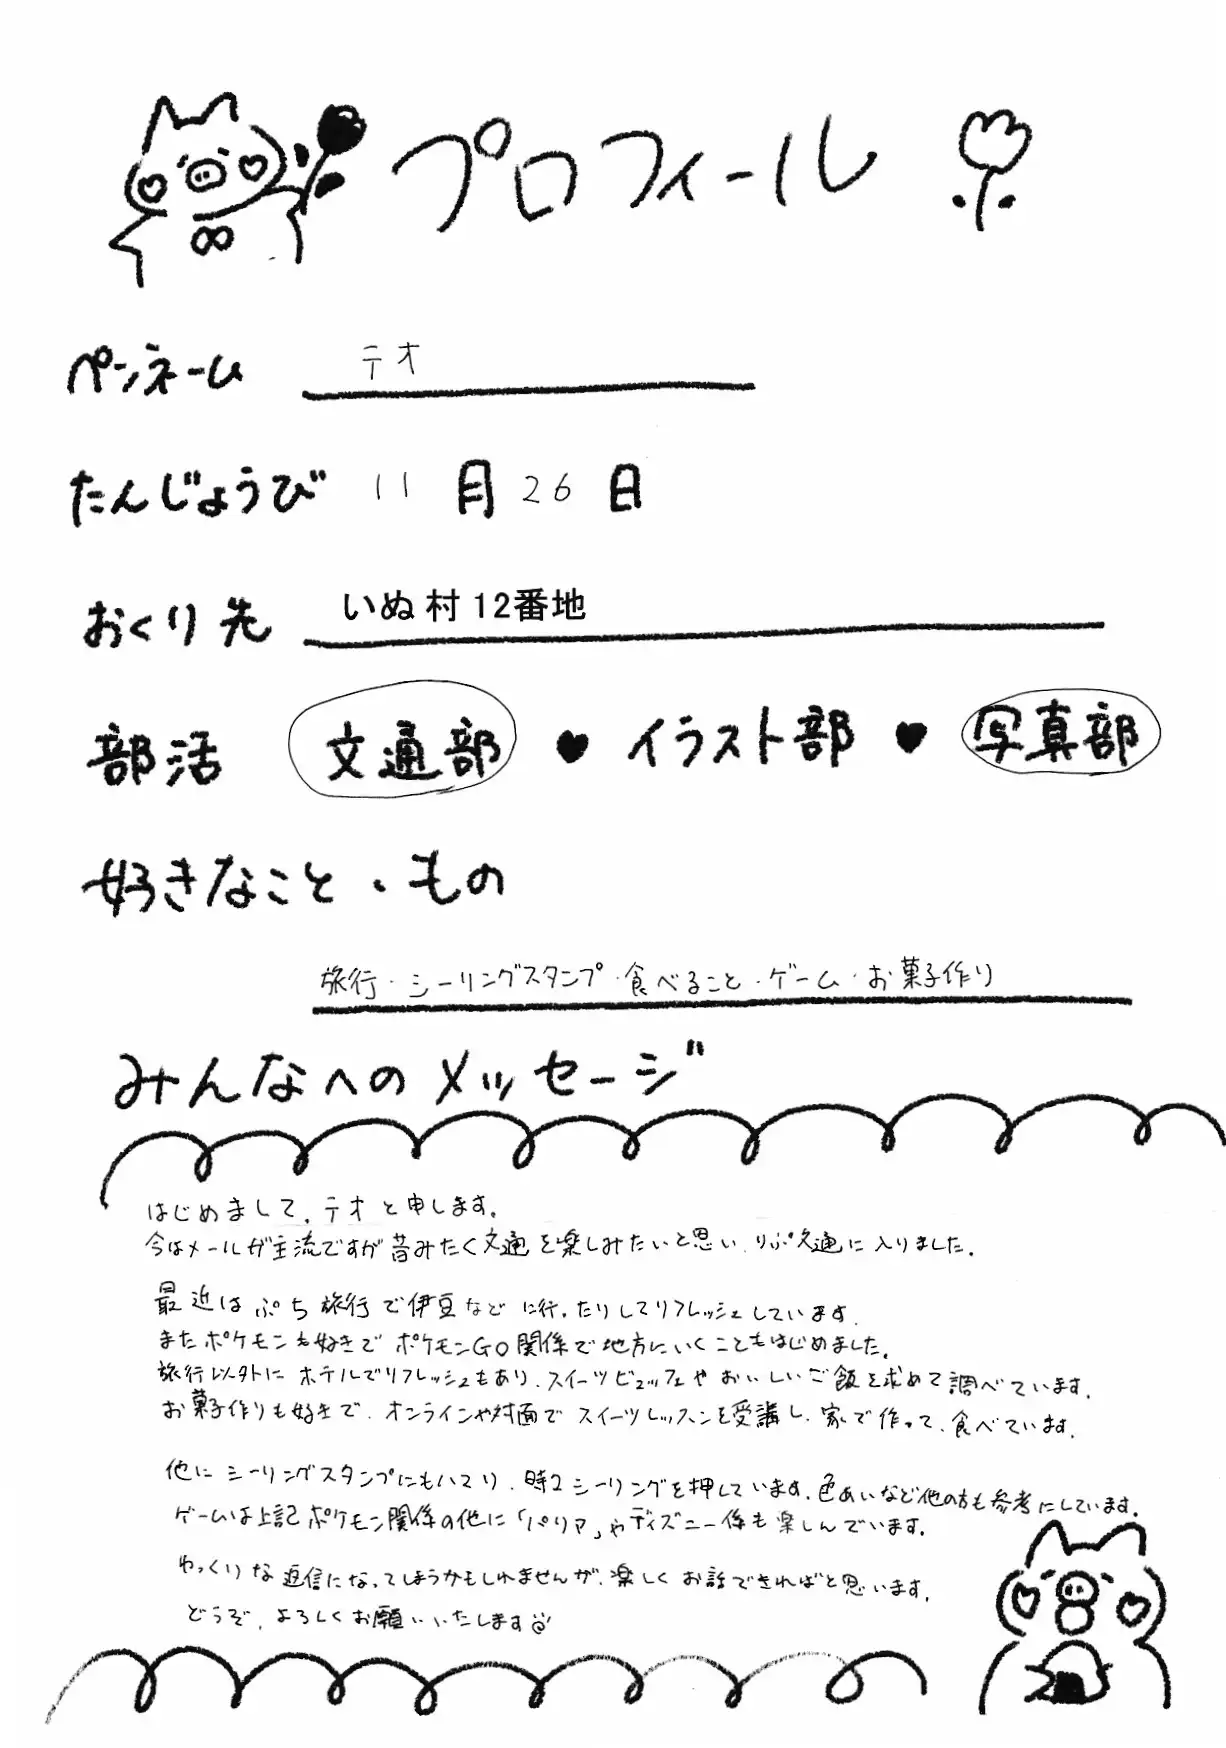 プロフィール
ペンネーム テオ
たんじょうび 11月26日
おくり先 いぬ村12番地
部活 文通部 ♥ イラスト部 ♥ 写真部
好きなこと・もの
旅行・シーリングスタンプ・食べること・ゲーム・お菓子作り
みんなへのメッセージ
はじめまして、テオと申します。
今はメールが主流ですが昔みたく文通を楽しみたいと思い、りぷ文通に入りました。
最近はぷち旅行で伊豆などに行ったりしてリフレッシュしています。
またポケモンも好きでポケモンGO関係で地方にいくこともはじめました。
旅行以外にホテルでリフレッシュもあり、スイーツビュッフェやおいしいご飯を求めて調べています。
お菓子作りも好きで、オンラインや対面でスイーツレッスンを受講し、家で作って、食べています。
他にシーリングスタンプにもハマり、時々シーリングを押しています。色あいなど他の方も参考にしています。
ゲームは上記ポケモン関係の他に「パリィ」やディズニー係も楽しんでいます。
ゆっくりな返信になってしまうかもしれませんが、楽しくお話できればと思います。
どうぞ、よろしくお願いいたします☺